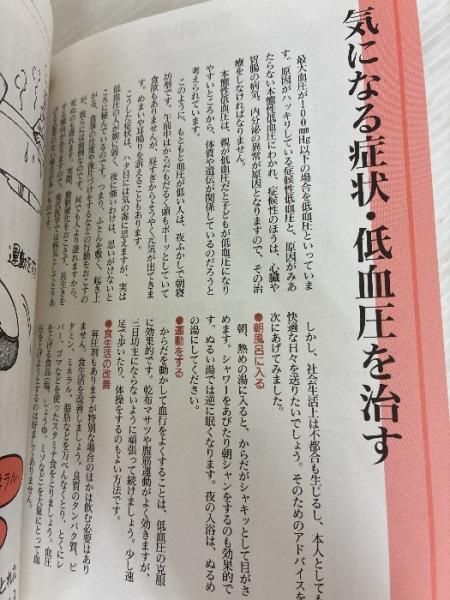 気になる症状・低血圧を治す
最大血圧が100mmHg以下の場合を低血圧といっていま
す。原因がハッキリしている症候性低血圧と、原因がみあ
たらない本態性低血圧にわかれ、症候性のほうは、心臓や
胃腸の病気、内分泌の異常が原因となりますので、その治
療をしなければなりません。
本態性低血圧は、親が低血圧だと子どもが低血圧になり
やすいところから、体質や遺伝が関係しているのだろうと
考えられています。
このように、もともと血圧が低い人は、夜ふかしで朝寝
坊型です。午前中はからだもだるく頭もボーッとしていて
食欲もありませんが、昼すぎからようやく元気が出てきま
す。めまいや立ち
こうした症状は、ハタ目には気の毒に思えますが、実は
低血圧の人が朝に弱く、夜に強いわけは、思いがけないと
ころに秘んでいるのです。つまり、ふとんを敷く、起き上
がる、食事の仕度や後片づけをするなどの行動をおとすの
しかし、社会生活上は不都合も生じるし、本人としても
快適な日々を送りたいでしょう。そのためのアドバイスを
次にあげてみました。
●朝風呂に入る
朝、熱めの湯に入ると、からだがシャキッとして目がさ
めます。シャワーをあびたり朝シャンをするのも効果的で
す。ぬるい湯では逆に眠くなります。夜の入浴は、ぬるめ
の湯にしてください。
●運動をする
からだを動かして血行をよくすることは、低血圧の克服
に効果的です。乾布マサツや腹筋運動がよく効きますが、
三日坊主にならないように頑張って続けましょう。少し速
足で歩いたり、体操をするのもよい方法です。
●食生活の改善
昇圧剤もありますが特別な場合のほかは飲む必要はあり
ません。食生活を改善しましょう。良質のタンパク質、ビ
タミン、ミネラル、脂肪などを万べんなくとり、とくにレ
バー、ゴマなどを使ったスタミナ食をとりましょう。血圧
を上げる食品（塩、しょうゆ、みそなど）を大量にとって血
圧を上げようとするのは好ましくありません。